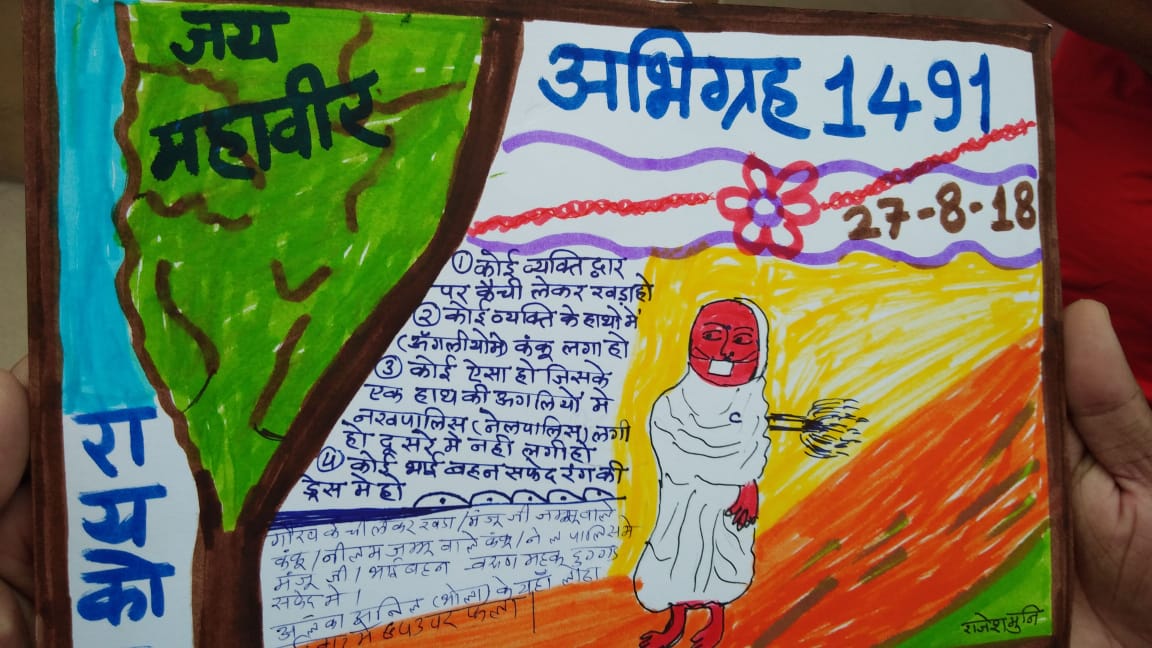 जय
महावीर
अभिग्रह 1491
27-8-18
① कोई व्यक्ति द्वार
पर कैंची लेकर खड़ा हो
② कोई व्यक्ति के हाथो में
(ऊँगलीयोमे) कंकू लगा हो
③ कोई ऐसा हो जिसके
एक हाथ की ऊगलियों मे
नखपालिस (नेलपालिस) लगी
हो दूसरे मे नही लगी हो
④ कोई भाई बहन सफेद रंग की
ड्रेस मे हो
गौरव कैची लेकर खड़ा / मंजू जी जम्मू वाले
कंकू / नीलम जम्मू वाले कंकू / नेल पालिस मे
मंजू जी / भाई बहन - वरुण महक दुग्गड़
सफेद मे ।
अलका सुनिल (भोला) के यहाँ
मे पर फला ।
राजेशमुनि
रा
य
को